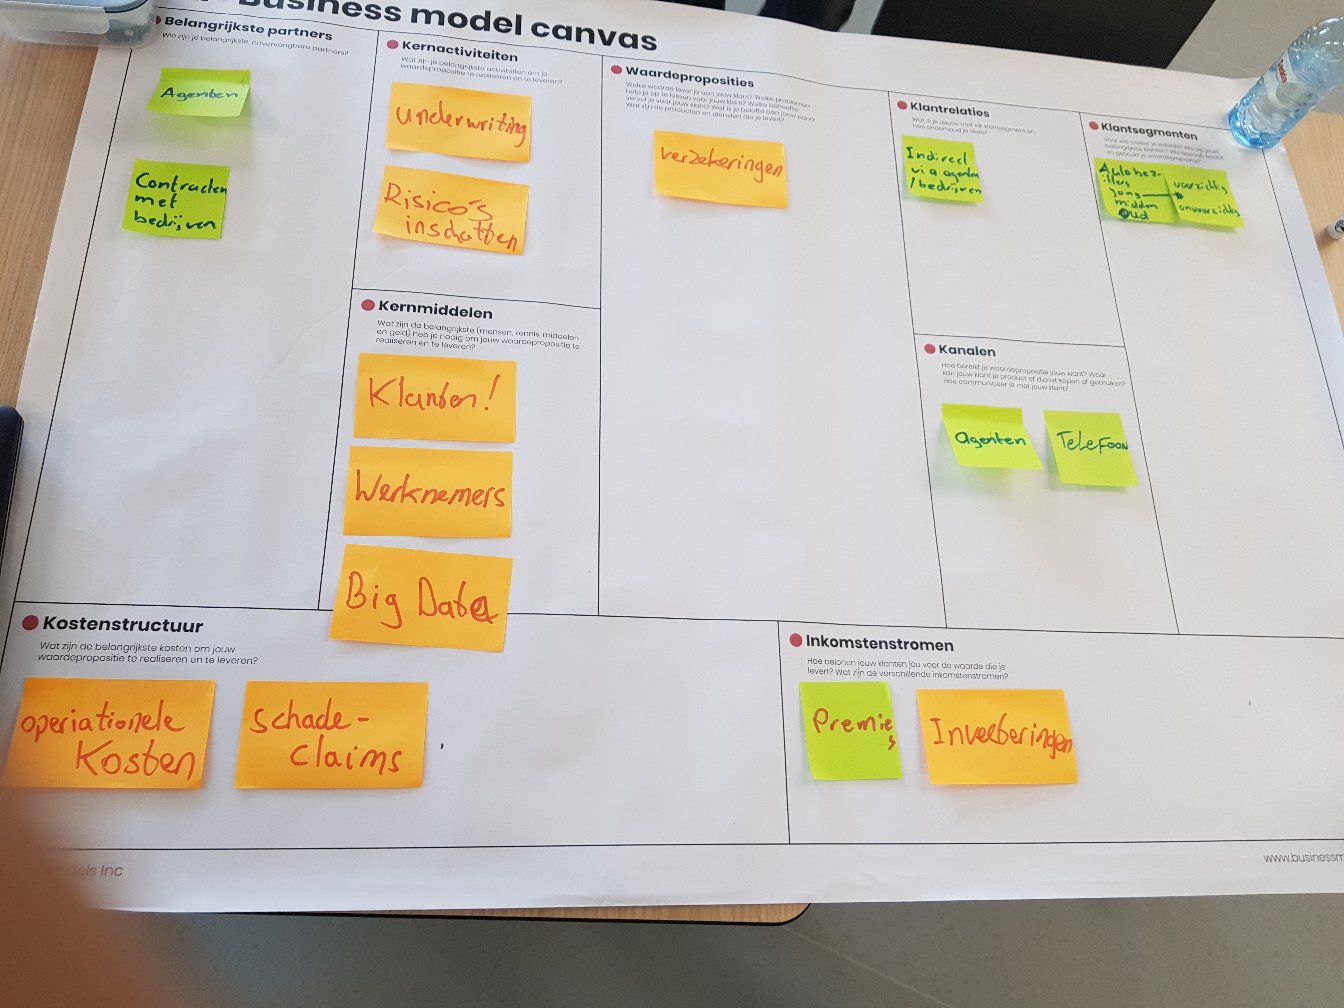 Business model canvas
Belangrijkste partners
Wie zijn je belangrijkste, onvervangbare partners?
Agenten
Contracten
met
bedrijven
Kernactiviteiten
Wat zijn je belangrijkste activiteiten om je
waardepropositie te realiseren en te leveren?
underwriting
Risico's
inschatten
Kernmiddelen
Wat zijn de belangrijkste (mensen, kennis, middelen
en geld) heb je nodig om jouw waardepropositie te
realiseren en te leveren?
Klanten!
Werknemers
Big Data
Waardeproposities
Welke waarde lever je aan jouw klant? Welke problemen
help je op te lossen voor jouw klant? Welke behoefte
vervul je voor jouw klant? Wat is je belofte aan jouw klant?
Wat zijn de producten en diensten die je levert?
verzekeringen
Klantrelaties
Wat is je relatie met elk klantsegment en
hoe onderhoud je deze?
Indirect
via agenten
/ bedrijven
Kanalen
Hoe bereikt je waardepropositie jouw klant? Waar
kan jouw klant je product of dienst kopen of gebruiken?
Hoe communiceer je met jouw klant?
agenten
Telefoon
Klantsegmenten
Autobez-
itters
Jong
midden
oud
voorzichtig
onvoorzichtig
Kostenstructuur
Wat zijn de belangrijkste kosten om jouw
waardepropositie te realiseren en te leveren?
operiationele
Kosten
Schade-
Claims
Inkomstenstromen
Hoe belonen jouw klanten jou voor de waarde die je
levert? Wat zijn de verschillende inkomstenstromen?
Premie
s
Investeringen
dels Inc
www.businessm